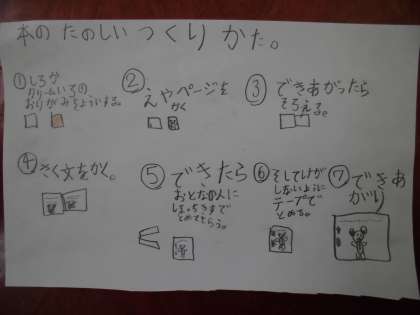 本のたのしいつくりかた。
①しろか
クリームいろの
おりがみをよういする。
②えやページを
かく
③できあがったら
そろえる。
④さく文をかく。
⑤できたら
おとなの人に
ほっちきすで
とめてもらう。
⑥そしてけが
しないように
テープで
とめる。
⑦できあ
がり